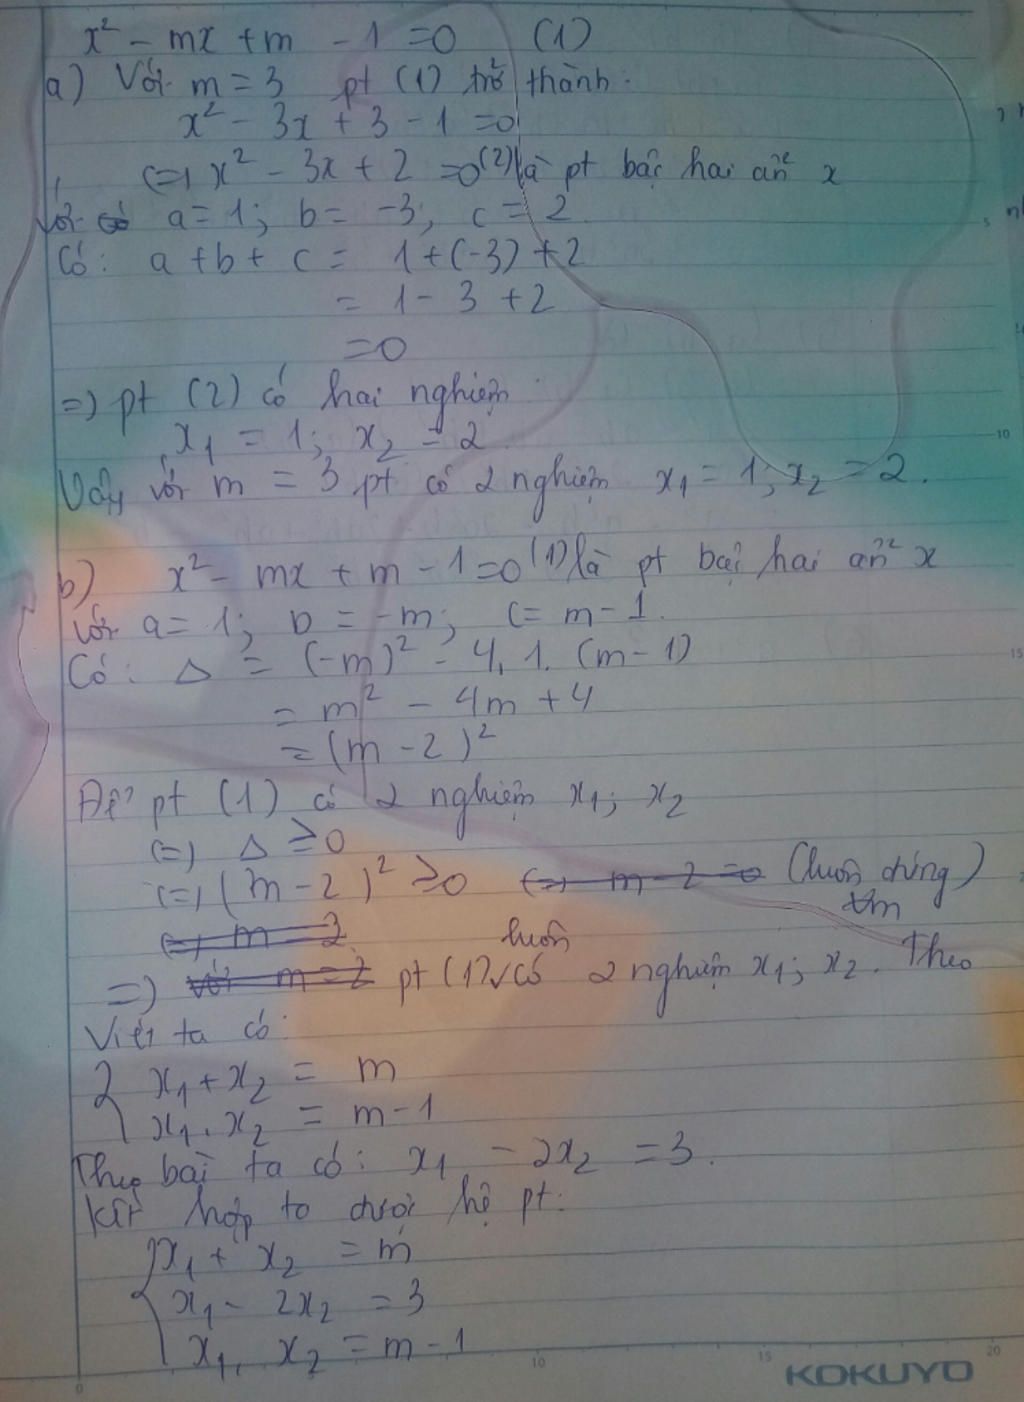 x² - mx + m - 1 = 0 (1)
a) Với m = 3 pt (1) trở thành:
x² - 3x + 3 - 1 = 0
<=> x² - 3x + 2 = 0 (2) là pt bậc hai ẩn x
Với có a = 1; b = -3; c = 2.
Có: a + b + c = 1 + (-3) + 2
= 1 - 3 + 2
= 0
=> pt (2) có hai nghiệm:
x₁ = 1; x₂ = 2
Vậy với m = 3 pt có 2 nghiệm x₁ = 1; x₂ = 2.
b) x² - mx + m - 1 = 0 (1) là pt bậc hai ẩn x
với a = 1; b = -m; c = m - 1.
Có: Δ = (-m)² - 4.1.(m - 1)
= m² - 4m + 4
= (m - 2)²
Để pt (1) có 2 nghiệm x₁; x₂
<=> Δ ≥ 0
<=> (m - 2)² ≥ 0 <=> m - 2 = 0 (luôn đúng)
∀m
<=> m = 2
=> với m = 2 pt (1) luôn có 2 nghiệm x₁; x₂. Theo
Viét ta có:
{ x₁ + x₂ = m
x₁.x₂ = m - 1
Theo bài ta có: x₁ - 2x₂ = 3.
Kết hợp ta được hệ pt:
{ x₁ + x₂ = m
x₁ - 2x₂ = 3
x₁.x₂ = m - 1
0 10 15 20
KOKUYO